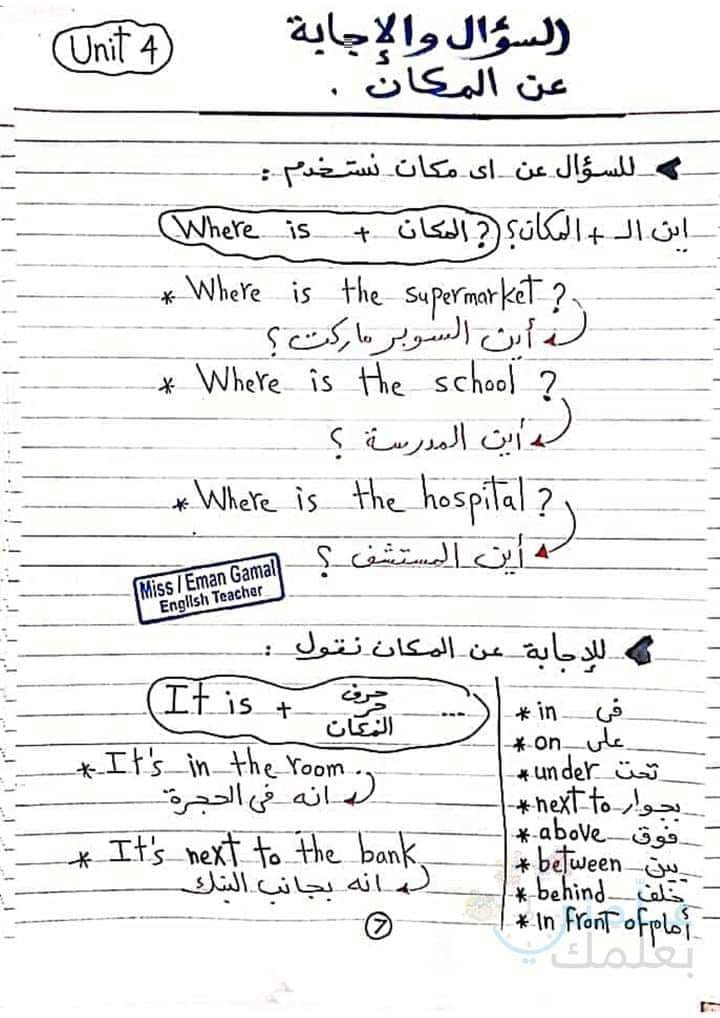 Unit 4
السؤال والإجابة
عن المكان .
للسؤال عن اى مكان نستخدم :
اين الـ + المكان؟ Where is + المكان ?
* Where is the supermarket ?
أين السوبر ماركت ؟
* Where is the school ?
أين المدرسة ؟
* Where is the hospital ?
أين المستشفى ؟
Miss / Eman Gamal
English Teacher
للإجابة عن المكان نقول :
It is + حرف جر المكان ...
* It's in the room.
انه فى الحجرة
* It's next to the bank.
انه بجانب البنك
* in فى
* on على
* under تحت
* next to بجوار
* above فوق
* between بين
* behind خلف
* In front of أمام
7
بعلمك